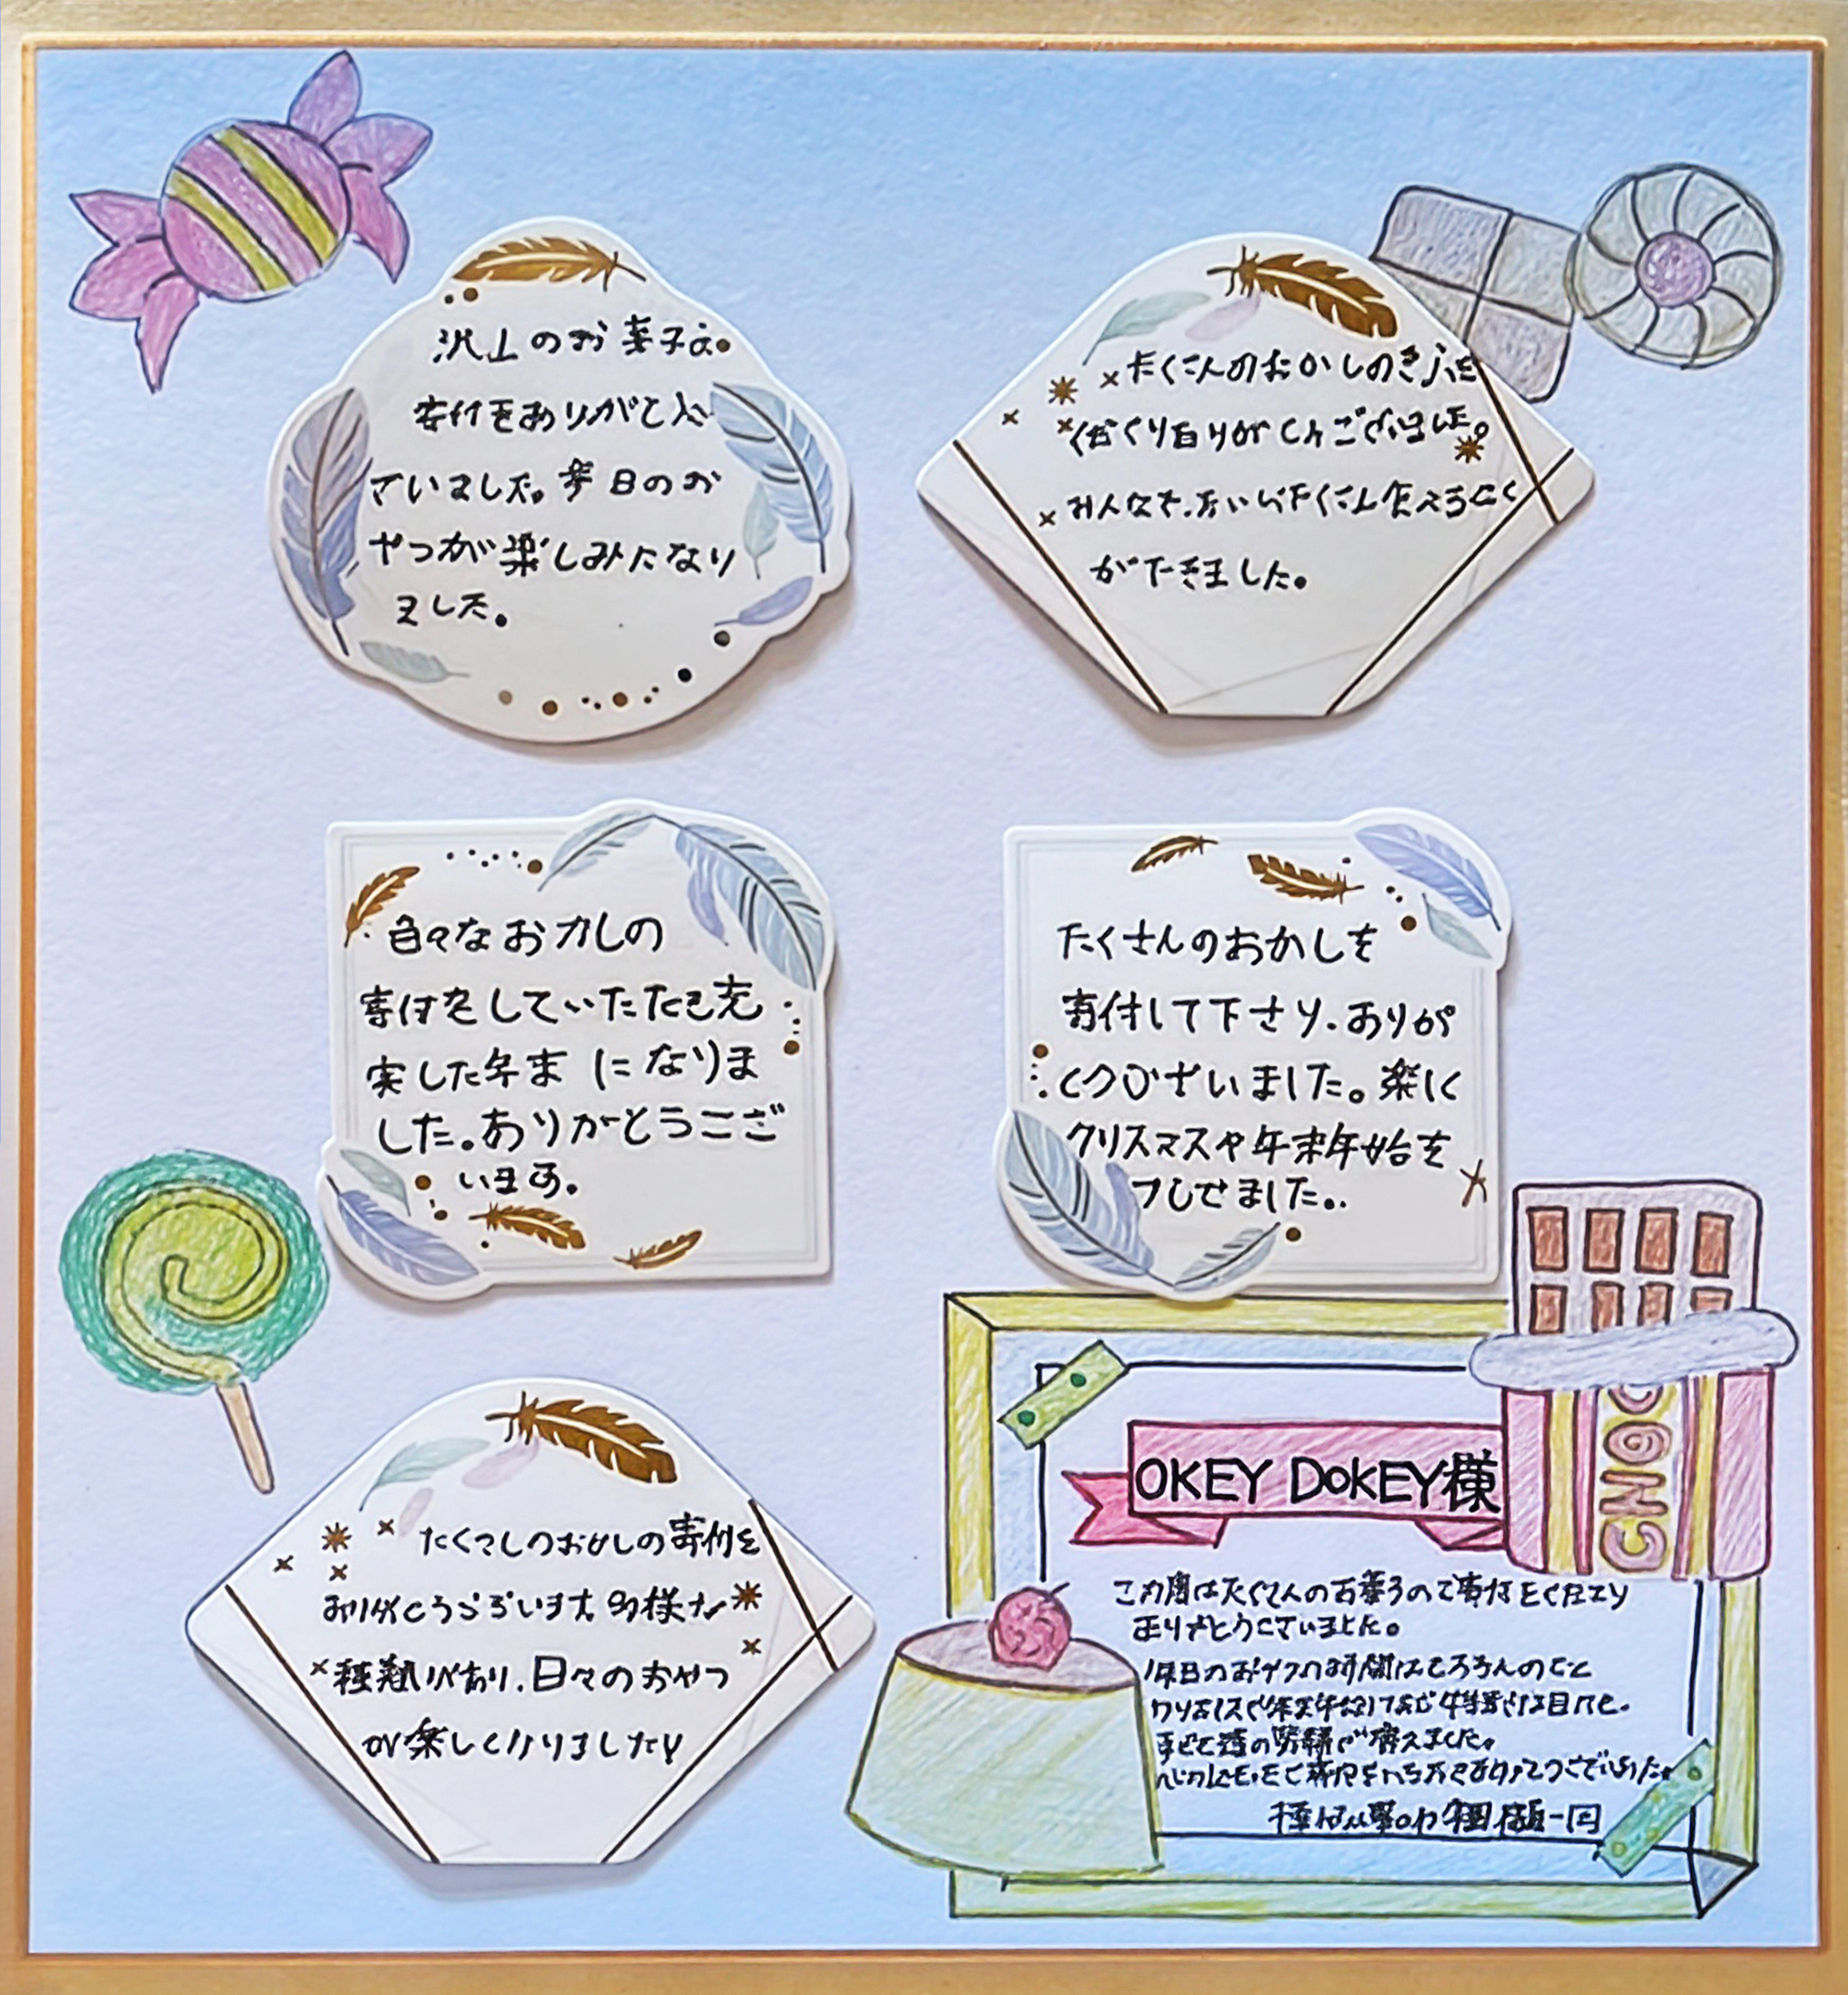 沢山のお菓子の
寄付をありがとう
ございました。毎日のお
やつが楽しみになり
ました。
たくさんのおかしのきふを
くださりありがとうございました。
みんなで、たくさん食べること
ができました。
色々なおかしの
寄付をしていただき充
実した年末になりま
した。ありがとうござ
います。
たくさんのおかしを
寄付して下さり、ありが
とうございました。楽しく
クリスマスや年末年始を
すごせました。
たくさんのおかしの寄付を
ありがとうございます 多様な
種類があり、日々のおやつ
が楽しくなりました!
CHOC
OKEY DOKEY様
この度はたくさんのお菓子のご寄付をくださり
ありがとうございました。
休日のおやつの時間はもちろんのこと
クリスマスや年末年始など特別な日にも、
子ども達の笑顔が増えました。
ありがとうございました。
一同